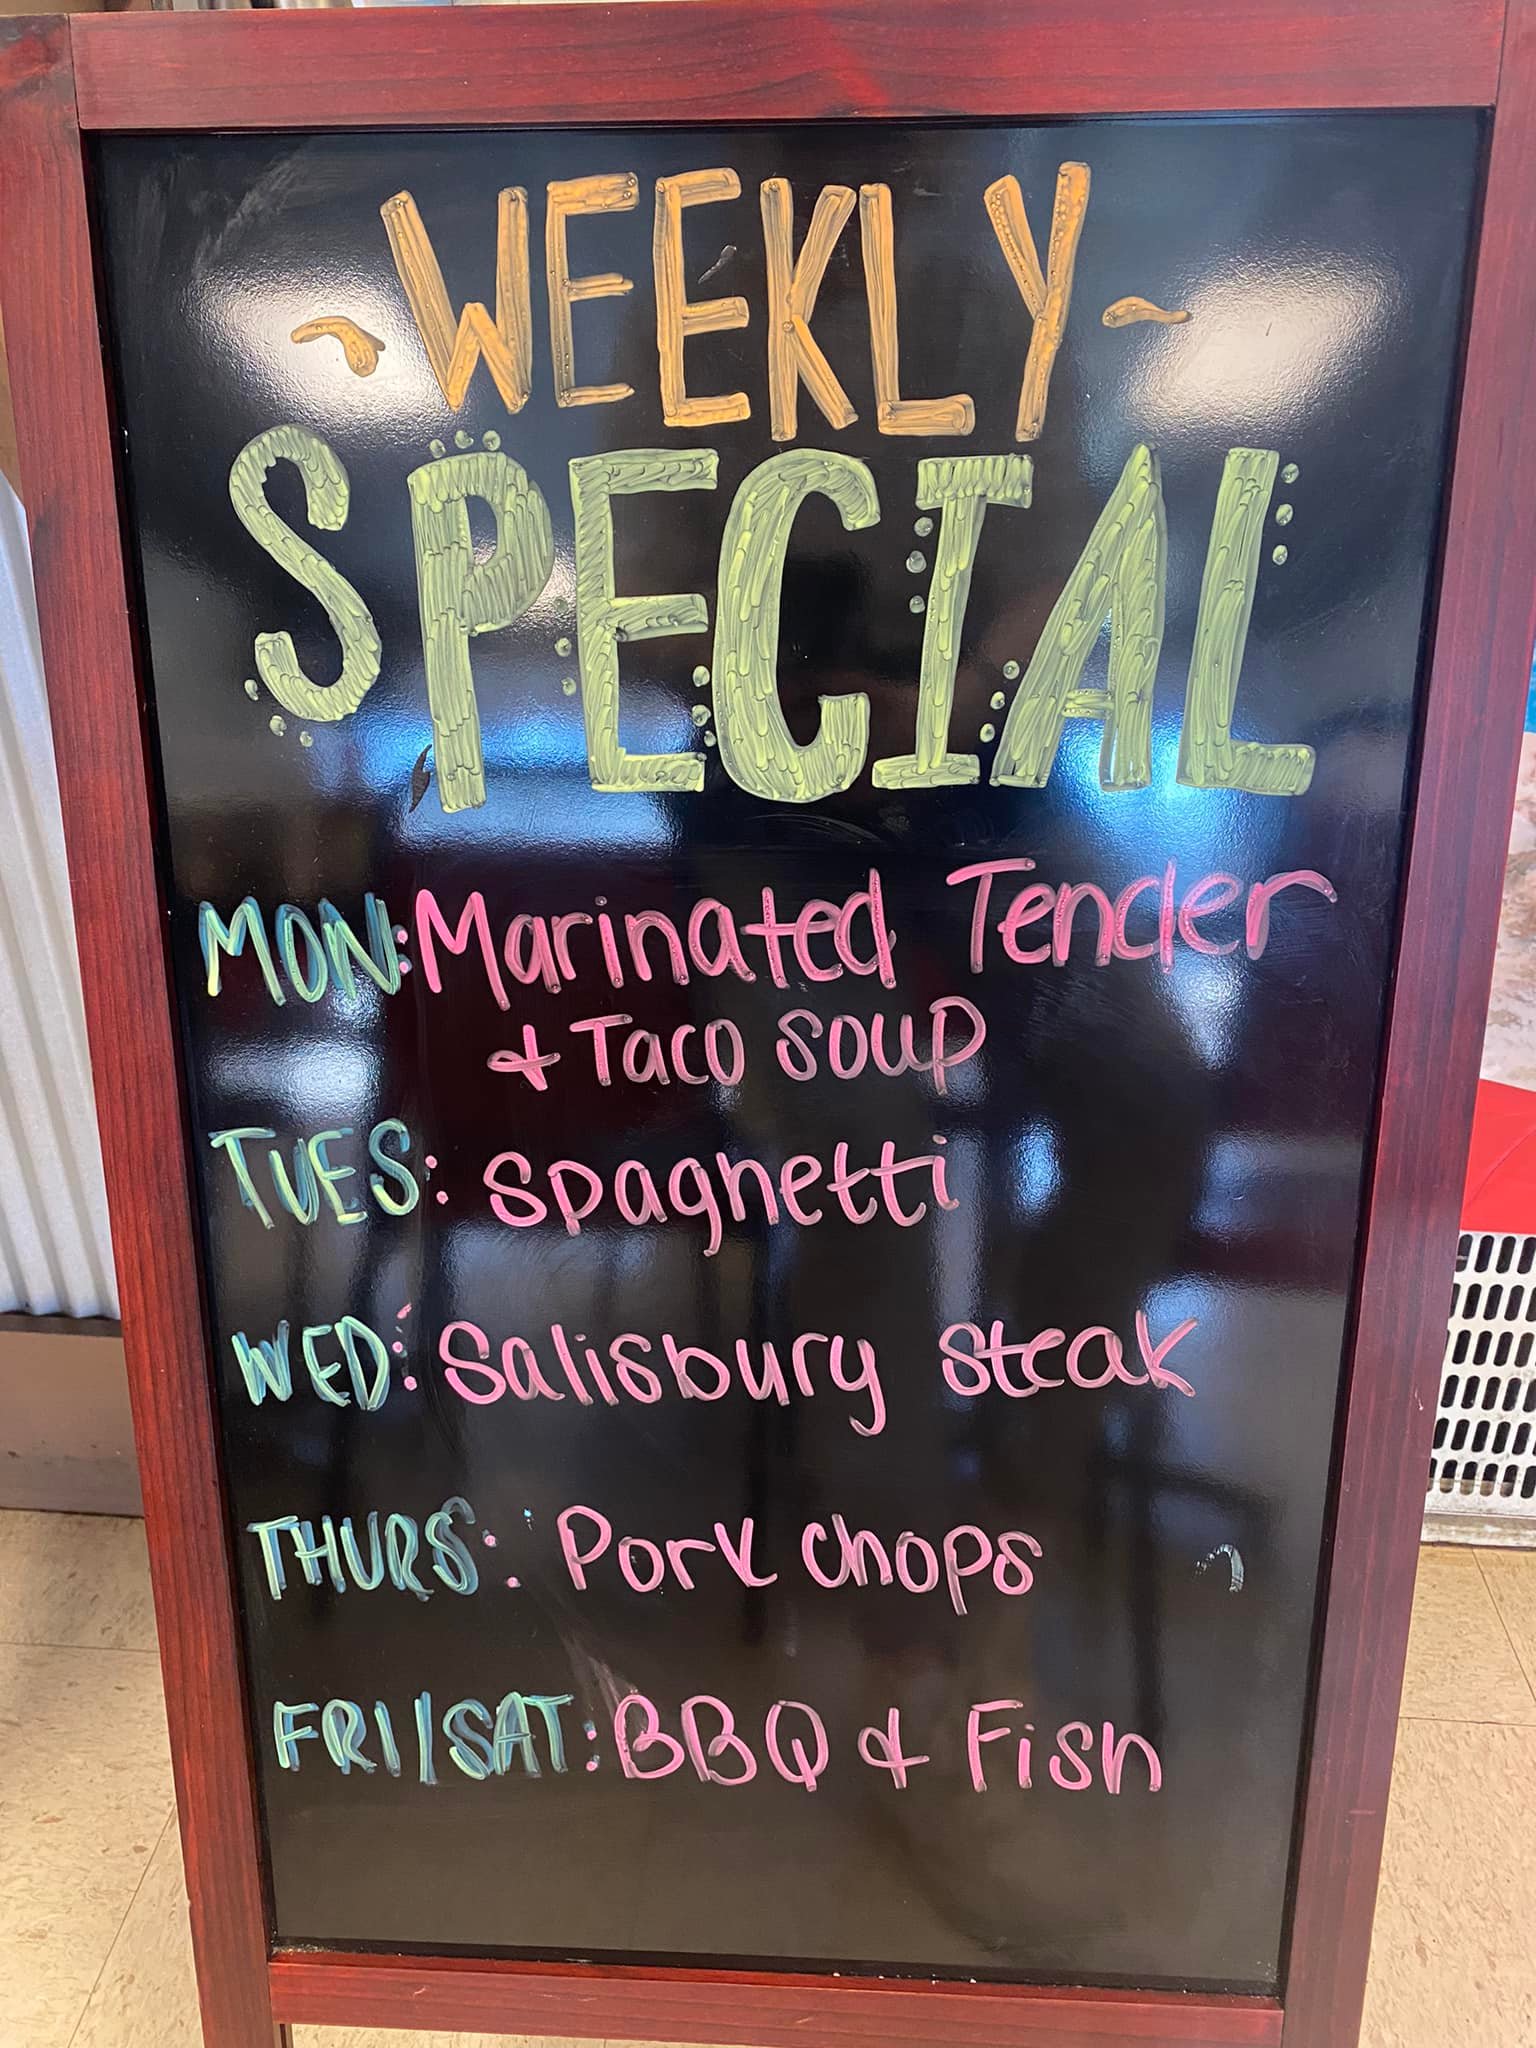 ~WEEKLY~
SPECIAL
MON: Marinated Tender
& Taco Soup
TUES: Spaghetti
WED: Salisbury Steak
THURS: Pork Chops
FRI/SAT: BBQ & Fish